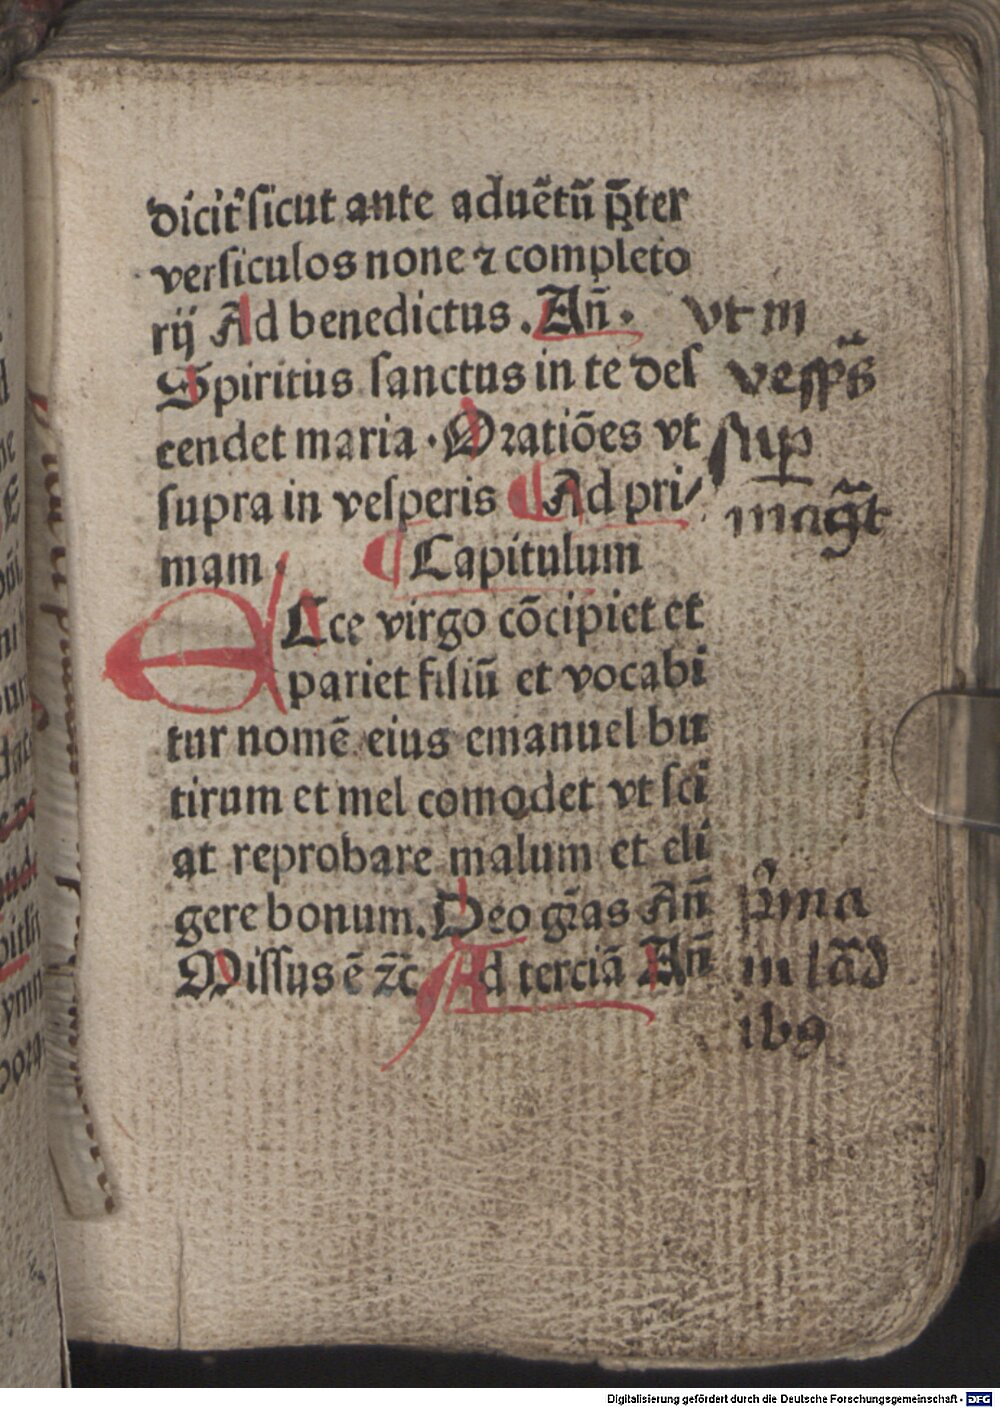 dicit᷑ sicut ante aduētū p̄ter
versiculos none ⁊ completo
rij Ad benedictus. An̄.
Spiritus sanctus in te des
cendet maria. Oratiōes vt
supra in vesperis ¶ Ad pri/
mam. ¶ Capitulum
Ecce virgo cōcipiet et
pariet filiū et vocabi
tur nomē eius emanuel bu
tirum et mel comodet vt sci
at reprobare malum et eli
gere bonum. Deo gr̄as An̄
Missus ē ⁊c̄ Ad terciā An̄
vt in
vesp̄s
sup
magt̄
p̄ma
in lād
ibꝯ
Digitalisierung gefördert durch die Deutsche Forschungsgemeinschaft - DFG